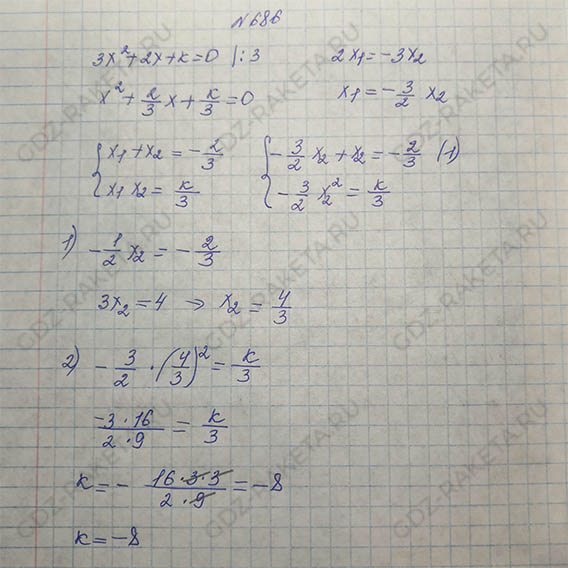 №686
3x²+2x+k=0 |:3
2x₁=-3x₂
x²+2/3 x+k/3=0
x₁=-3/2 x₂
{x₁+x₂=-2/3
x₁x₂=k/3
{-3/2 x₂+x₂=-2/3 (1)
-3/2 x₂²=k/3
1) -1/2 x₂=-2/3
3x₂=4 → x₂=4/3
2) -3/2·(4/3)²=k/3
-3·16/2·9=k/3
k=-16·3·3/2·9=-8
k=-8
GDZ-RAKETA.RU